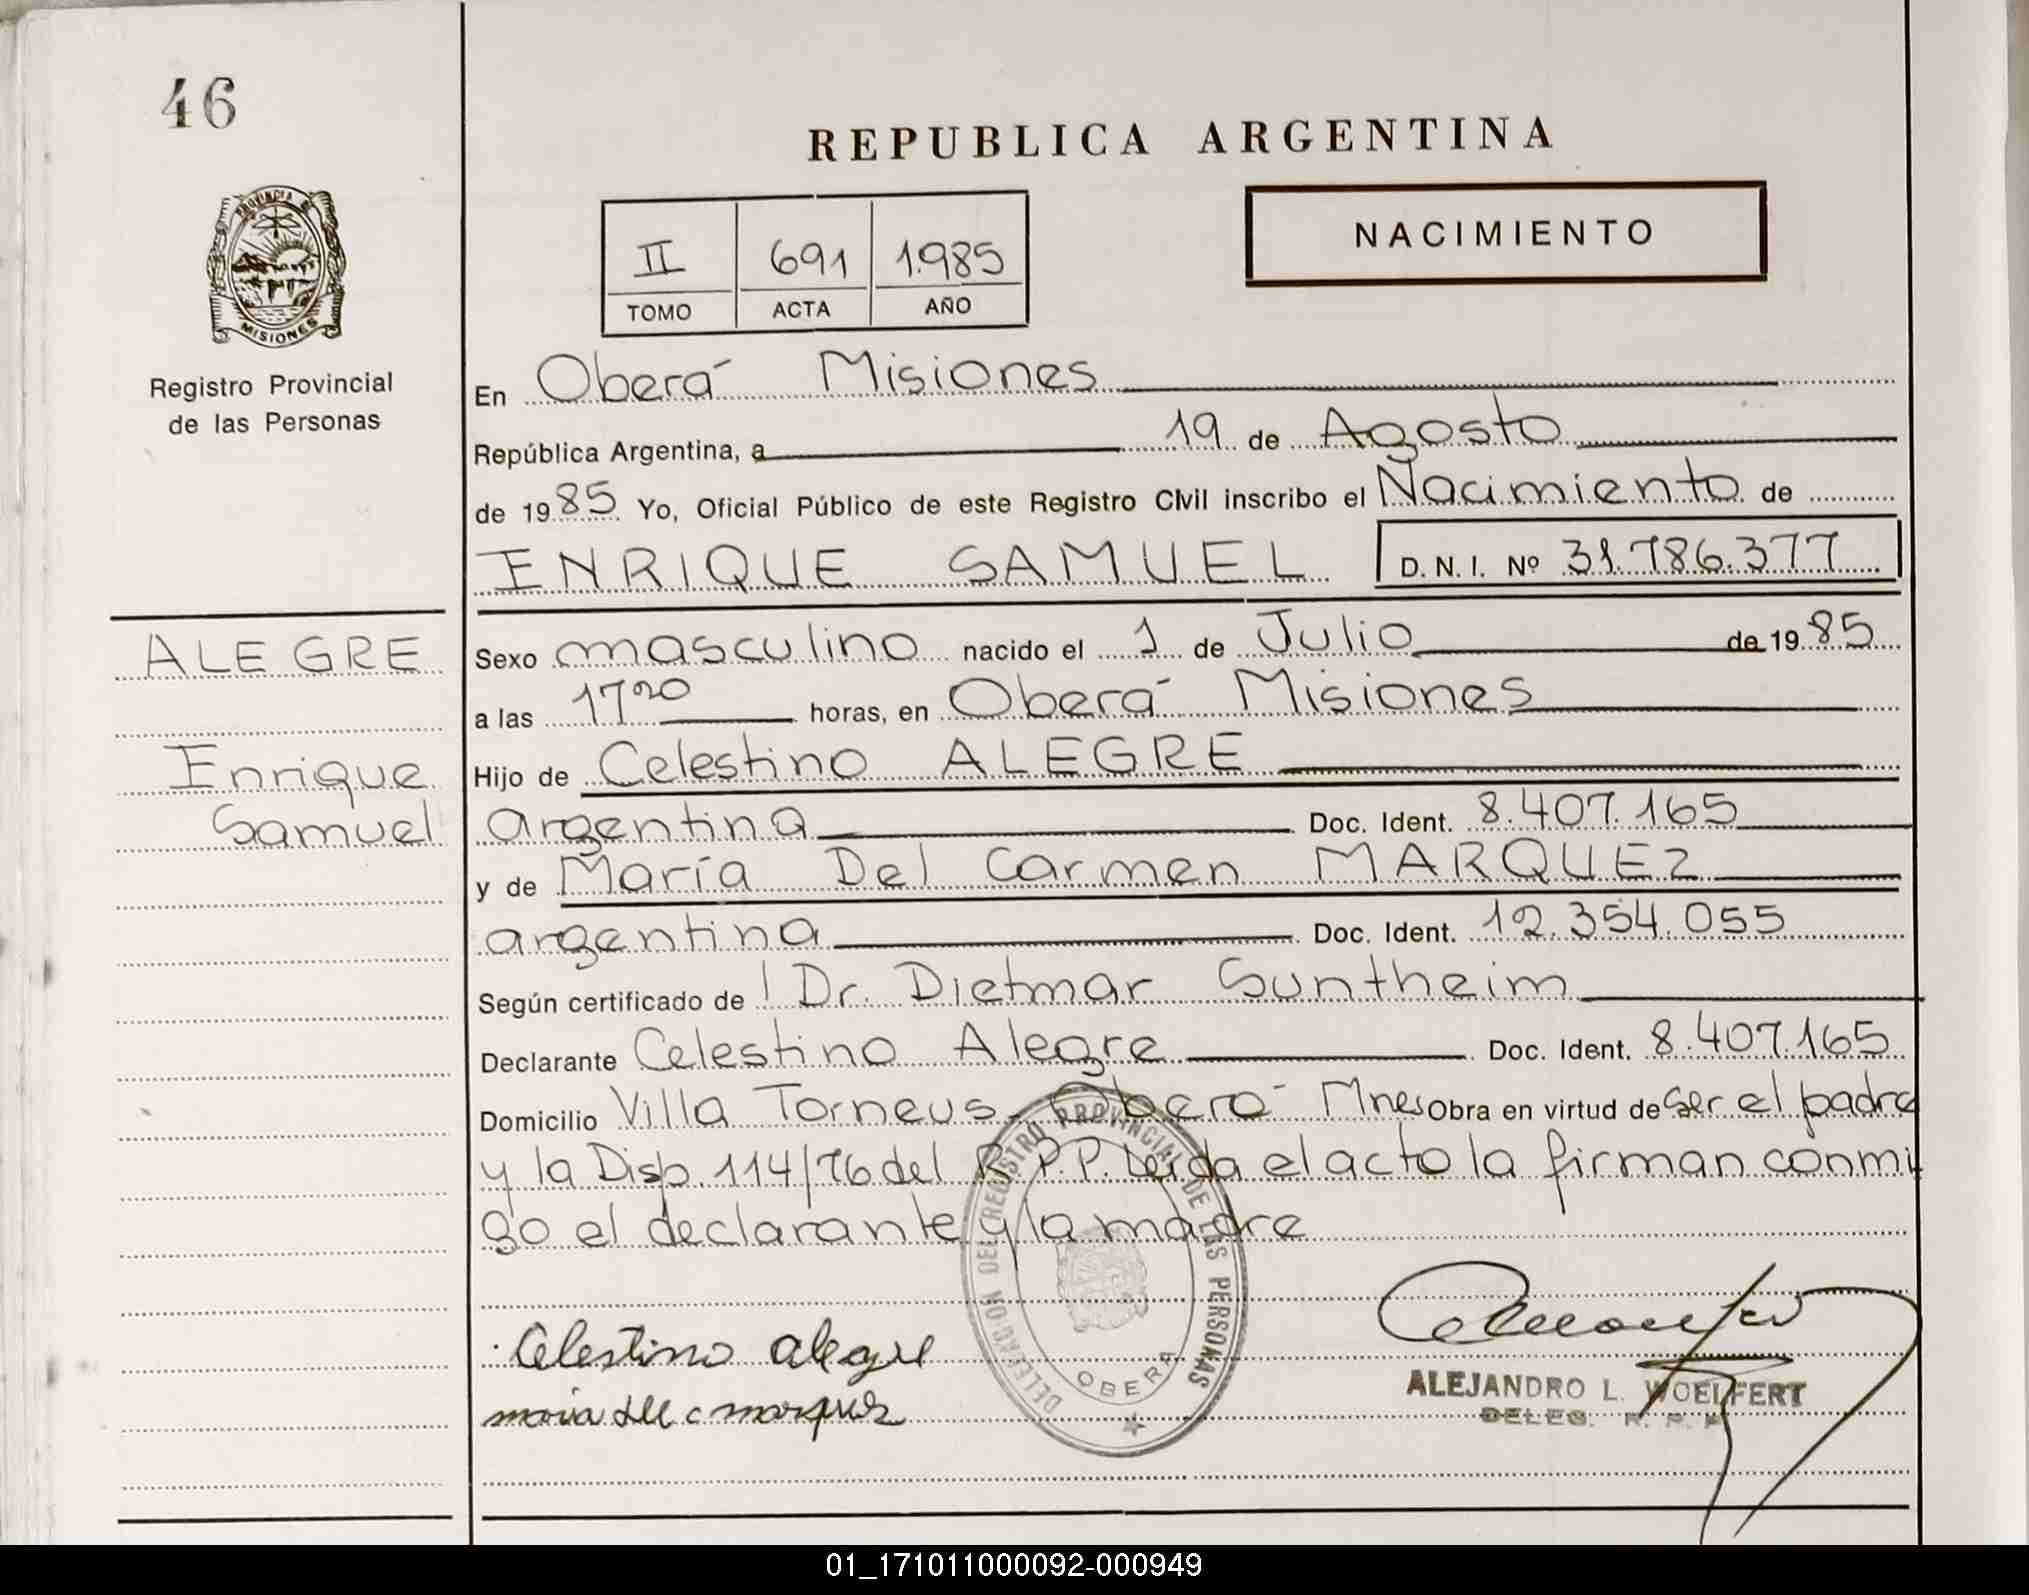 46
REPUBLICA ARGENTINA
PROVINCIA DE
MISIONES
Registro Provincial
de las Personas
II 691 1.985
TOMO ACTA AÑO
NACIMIENTO
En Oberá Misiones
República Argentina, a 19 de Agosto
de 1985 Yo, Oficial Público de este Registro Civil inscribo el Nacimiento de
ENRIQUE SAMUEL D.N.I. Nº 31.786.377
ALEGRE
Enrique
Samuel
Sexo masculino nacido el 1 de Julio de 1985
a las 17²⁰ horas, en Oberá Misiones
Hijo de Celestino ALEGRE
argentina Doc. Ident. 8.407.165
y de María Del Carmen MARQUEZ
argentina Doc. Ident. 12.354.055
Según certificado de Dr. Dietmar Suntheim
Declarante Celestino Alegre Doc. Ident. 8.407.165
Domicilio Villa Torneus - Oberá Mnes Obra en virtud de ser el padre
y la Disp. 114/76 del R.P.P. Leída el acto la firman conmi
go el declarante y la madre
DELEGACION DEL REGISTRO PROVINCIAL DE LAS PERSONAS
OBERA
Celestino alegre
maria del c marquez
ALEJANDRO L. WOELFERT
DELEG. R. P. P.
01_171011000092-000949